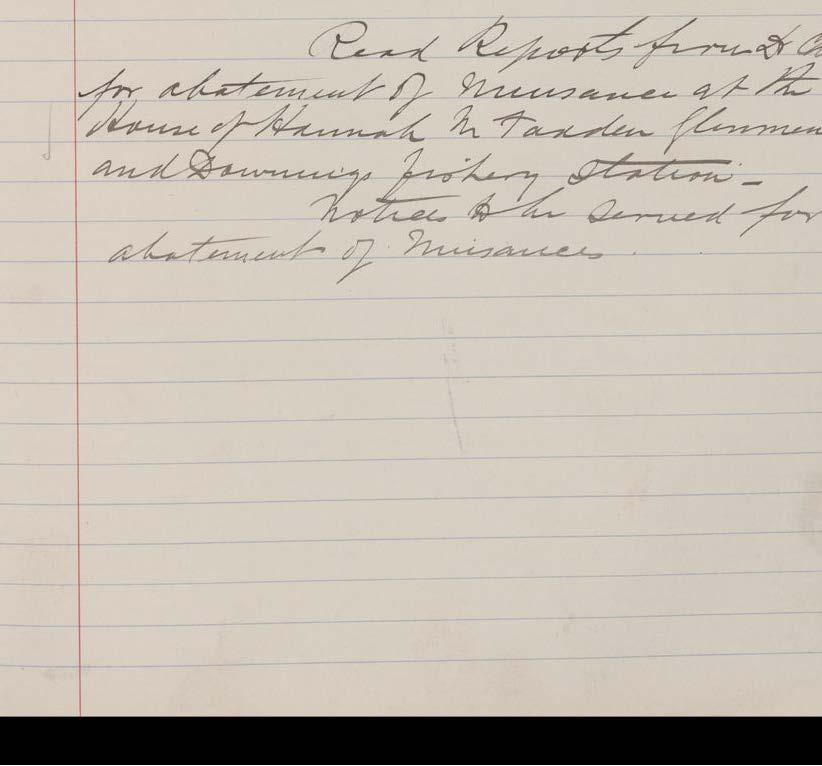 Read Reports from Dr
for abatement of Nuisance at the
House of Hannah McFadden
and Downings fishery Station -
Notices to be served for
abatement of Nuisances.